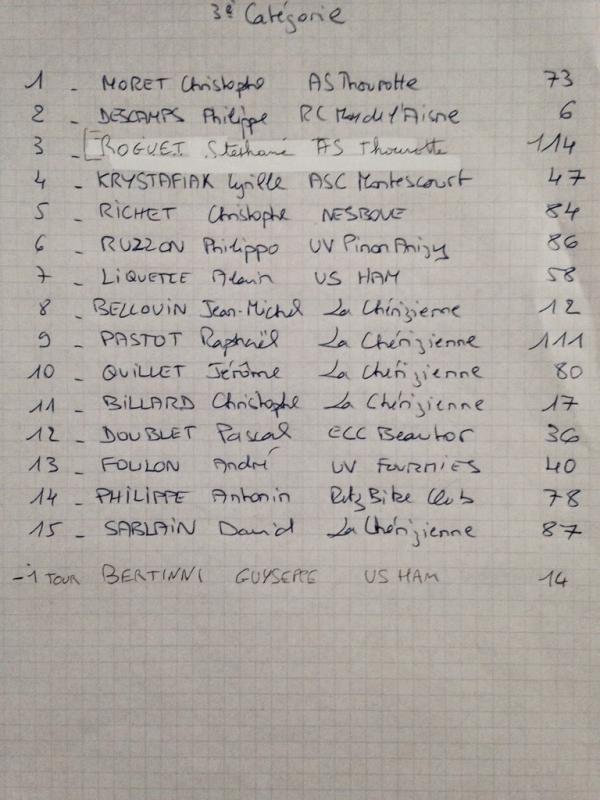 3è Catégorie
1 - MORET Christophe AS Thourotte 73
2 - DESCAMPS Philippe RC de l'Aisne 6
3 - ROGUET Stéphane AS Thourotte 114
4 - KRYSTAFIAK Cyrille ASC Montescourt 47
5 - RICHET Christophe NESBOVE 84
6 - RUZZON Philippo UV Pinon Anizy 86
7 - LIQUETTE Alain US HAM 58
8 - BELLOUIN Jean-Michel La Chérizienne 12
9 - PASTOT Raphaël La Chérizienne 111
10 - QUILLET Jérôme La Chérizienne 80
11 - BILLARD Christophe La Chérizienne 17
12 - DOUBLET Pascal ECC Beautor 36
13 - FOULON André UV FOURMIES 40
14 - PHILIPPE Antonin Bike Club 78
15 - SABLAIN David La Chérizienne 87
-1 TOUR BERTINNI GUYSEPPE US HAM 14